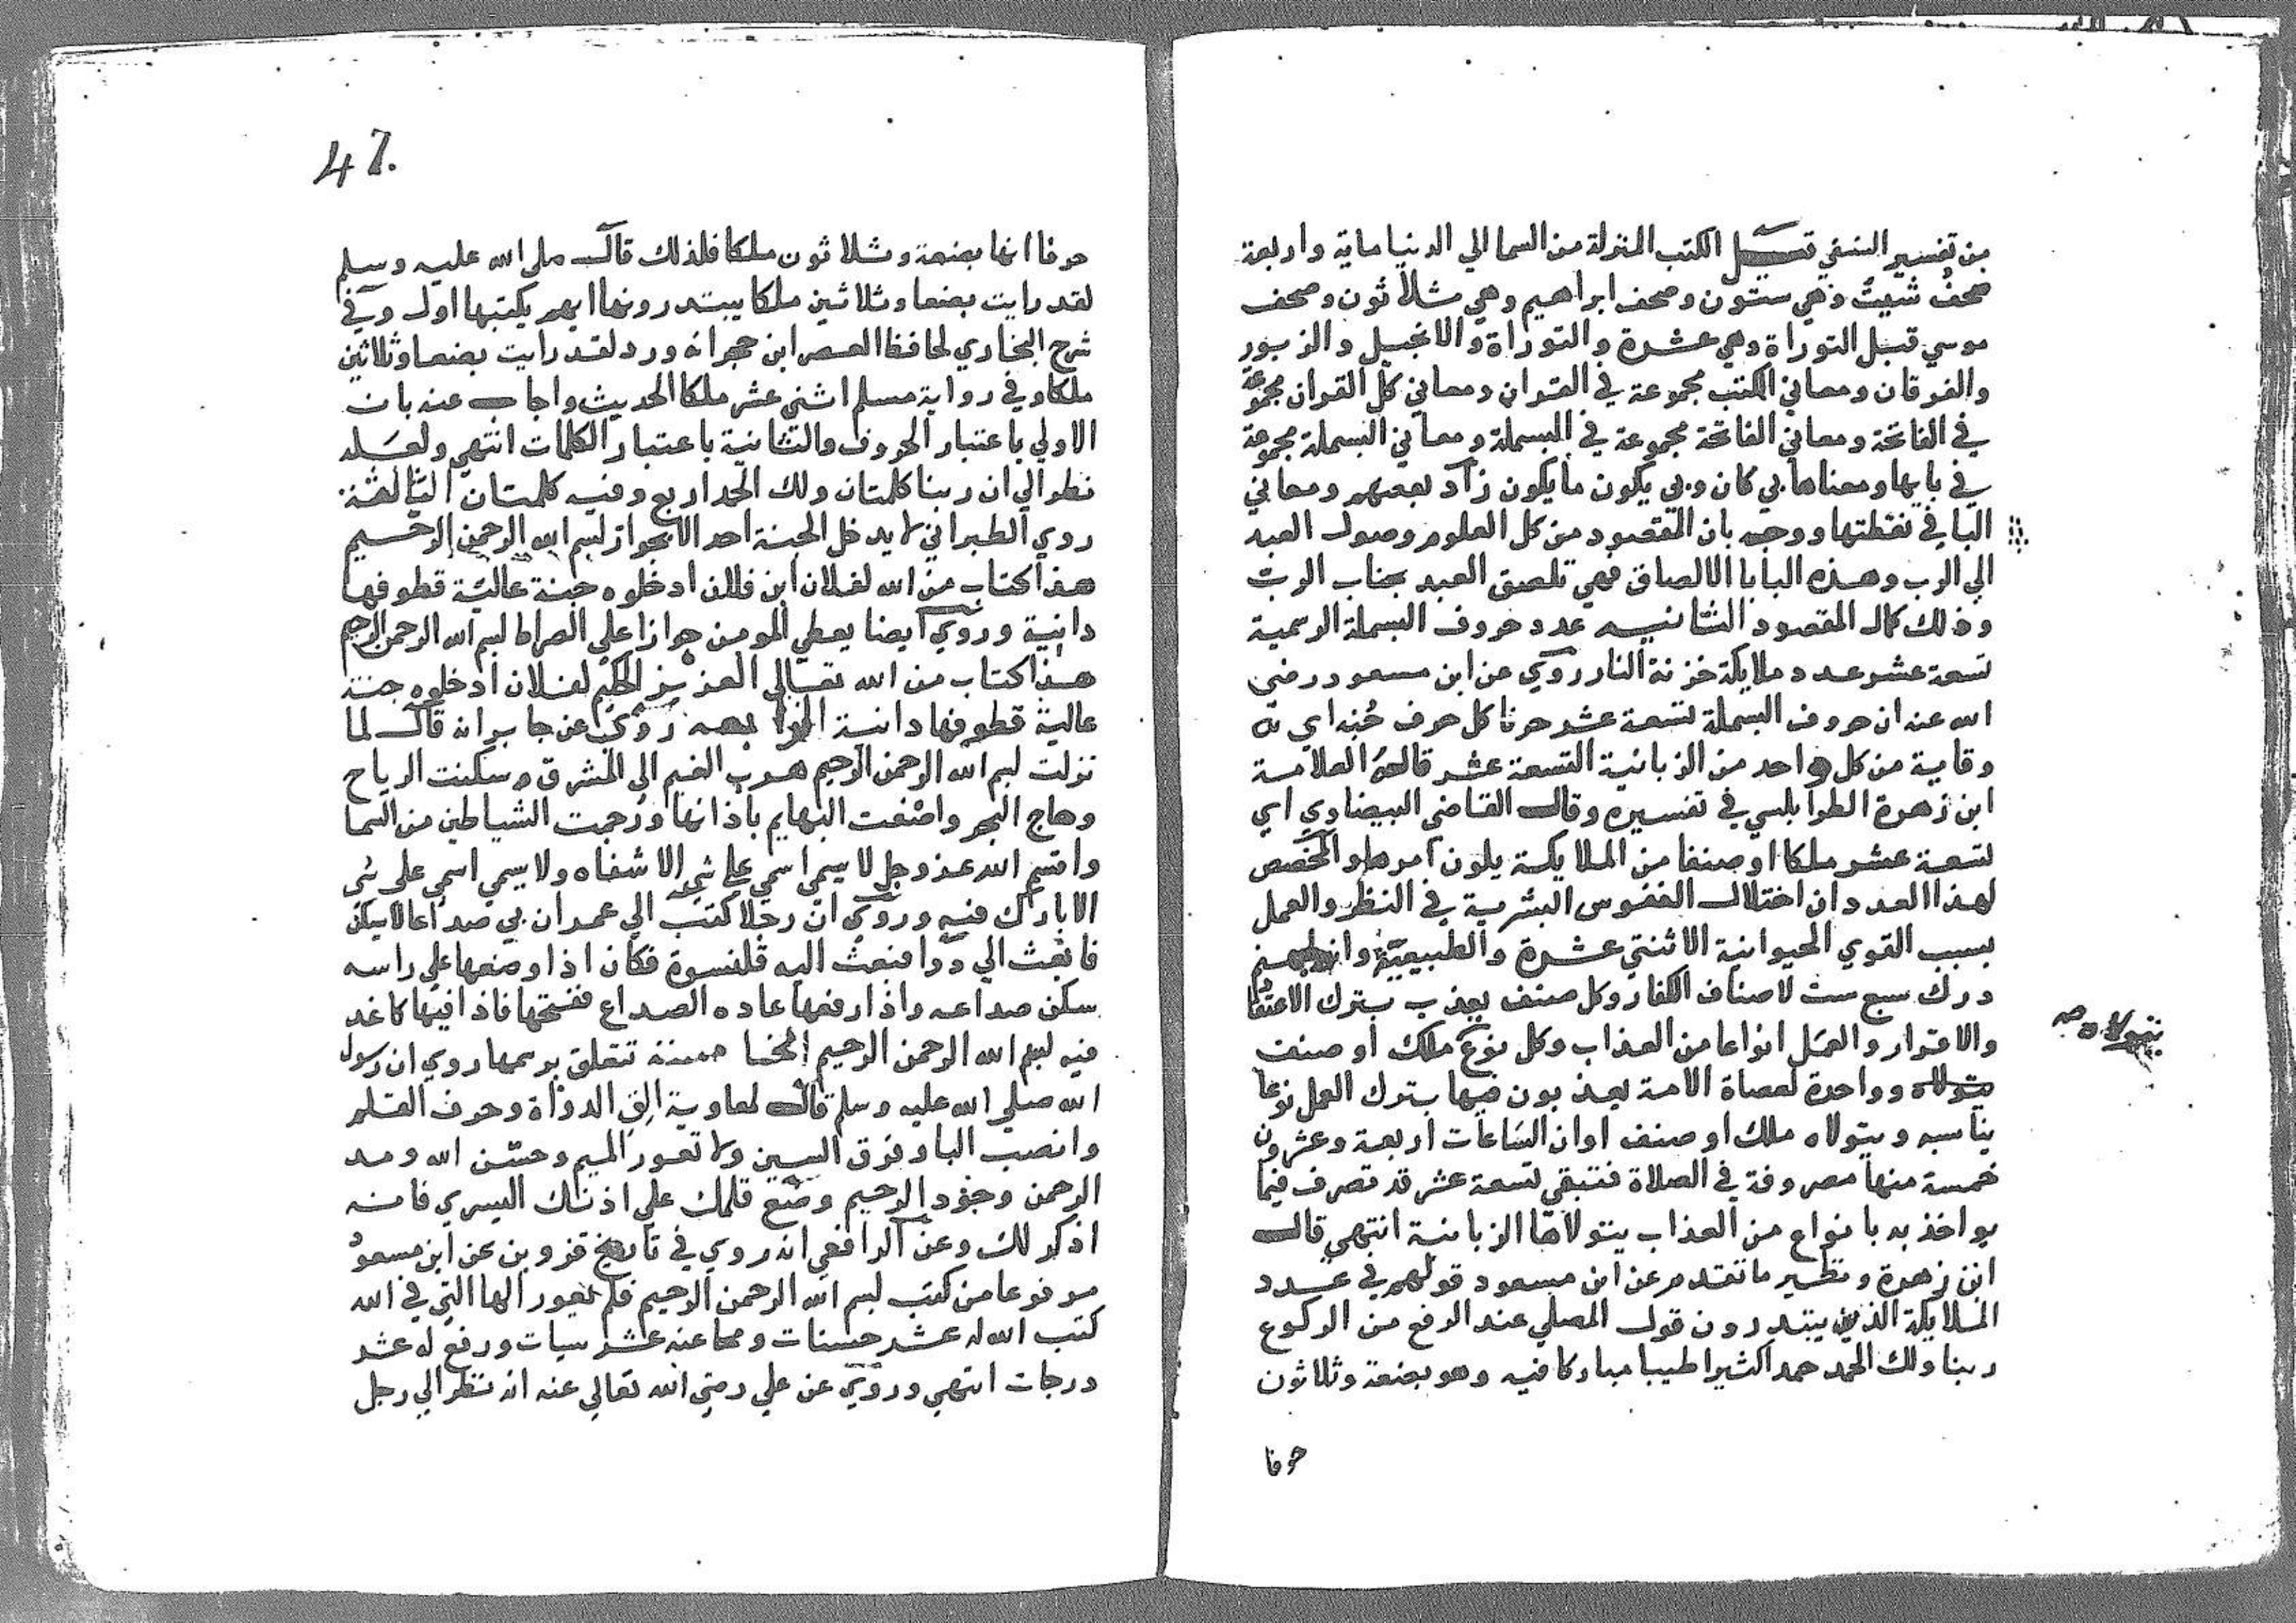 من تفسير النسفي قيل الكتب المنزلة من السما الي الدنيا ماية واربعة
صحف شيث وهي ستون وصحف ابراهيم وهي ثلاثون وصحف
موسي قبل التوراة وهي عشرة والتوراة والانجيل والزبور
والفرقان ومعاني الكتب مجموعة في القران ومعاني كل القران مجموعة
في الفاتحة ومعاني الفاتحة مجموعة في البسملة ومعاني البسملة مجموعة
في بايها ومعناها بي كان وبي يكون ما يكون زاد بعضهم ومعاني
البا في نقطتها ووجه بان المقصود من كل العلوم وصول العبد
الي الرب وهذه البا با الالصاق فهي تلصق العبد بجناب الرب
وذلك كمال المقصود الثانيه عدد حروف البسملة الرسمية
تسعة عشر عدد ملايكة خزنة النار روي عن ابن مسعود رضي
الله عنه ان حروف البسملة تسعة عشر حرفا كل حرف جنه اي
وقاية من كل واحد من الزبانية التسعة عشر قاله العلامة
ابن زهرة الطرابلسي في تفسيره وقال القاضي البيضاوي اي
تسعة عشر ملكا او صنفا من الملايكة يلون امرها والمخصص
لهذا العدد ان اختلال النفوس البشرية في النظر والعمل
بسبب القوي الحيوانية الاثنتي عشرة والطبيعية وان لجهنم
درك سبع ست لاصناف الكفار وكل صنف يعذب بترك الاعتقا
والاقرار والعمل انواعا من العذاب وكل نوع ملك او صنف
يتولاه وواحدة لعصاة الامة يعذبون فيها بترك العمل نوعا
يتولاه صه
يناسبه ويتولاه ملك او صنف او ان الساعات اربعة وعشرون
خمسة منها مصروفة في الصلاة فتبقي تسعة عشر قد تصرف فيما
يواخذ به بانواع من العذاب يتولاها الزبانية انتهي قال
ابن زهرة ونظير ما تقدم عن ابن مسعود قولهم في عدد
الملايكة الذين يبتدرون قول المصلي عند الرفع من الركوع
ربنا ولك الحمد حمدا كثيرا طيبا مباركا فيه وهو بضعة وثلاثون
حرفا
47.
حرفا انها بضعة وثلاثون ملكا فلذلك قال صلي الله عليه وسلم
لقد رايت بضعا وثلاثين ملكا يبتدرونها ايهم يكتبها اول وفي
شرح البخاري لحافظ العصر ابن حجر انه ورد لقد رايت بضعا وثلاثين
ملكا وفي رواية مسلم اثني عشر ملكا الحديث واجاب عنه بان
الاولي باعتبار الحروف والثانية باعتبار الكلمات انتهي ولعله
نظر الي ان ربنا كلمتان ولك الحمد اربع وفيه كلمتان الثالثة
روي الطبراني لا يدخل الجنة احد الا بجواز بسم الله الرحمن الرحيم
هذا كتاب من الله لفلان ابن فلان ادخلوه جنة عالية قطوفها
دانية وروي ايضا يعطي المومن جوازا علي الصراط بسم الله الرحمن الرحيم
هذا كتاب من الله تعالي العزيز الحكيم لفلان ادخلوه جنة
عالية قطوفها دانية روي عن جابر انه قال لما
نزلت بسم الله الرحمن الرحيم هرب الغيم الي المشرق وسكنت الرياح
وهاج البحر واصغت البهايم باذانها ورجمت الشياطين من السما
واقسم الله عز وجل لا يسمي اسمي علي شي الا شفاه ولا يسمي اسمي علي شي
الا بارك فيه وروي ان رجلا كتب الي عمر ان بي صداعا لا يسكن
فابعث الي دوا فبعث اليه قلنسوة فكان اذا وضعها علي راسه
سكن صداعه واذا رفعها عاده الصداع ففتحها فاذا فيها كاغد
فيه بسم الله الرحمن الرحيم الخامسة تتعلق برسمها روي ان رسول
الله صلي الله عليه وسلم قال لمعاوية الق الدواة وحرف القلم
وانصب البا وفرق السين ولا تعور الميم وحسن الله ومد
الرحمن وجود الرحيم وضع قلمك علي اذنك اليسري فانه
اذكر لك وعن الرافعي انه روي في تاريخ قزوين عن ابن مسعود
مرفوعا من كتب بسم الله الرحمن الرحيم فلم يعور الها التي في الله
كتب الله له عشر حسنات ومحا عنه عشر سيات ورفع له عشر
درجات انتهي وروي عن علي رضي الله تعالي عنه انه نظر الي رجل